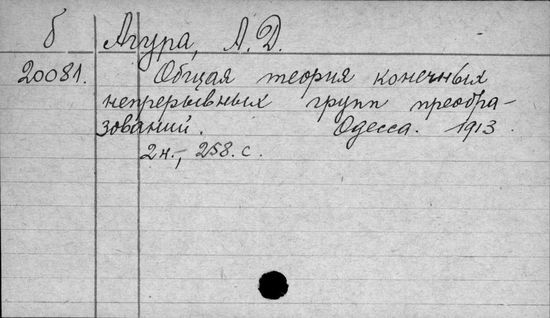 б Агура, А. Д.
20081. Общая теория конечных
непрерывных групп преобра-
зований. Одесса. 1913.
2 н., 258. с.